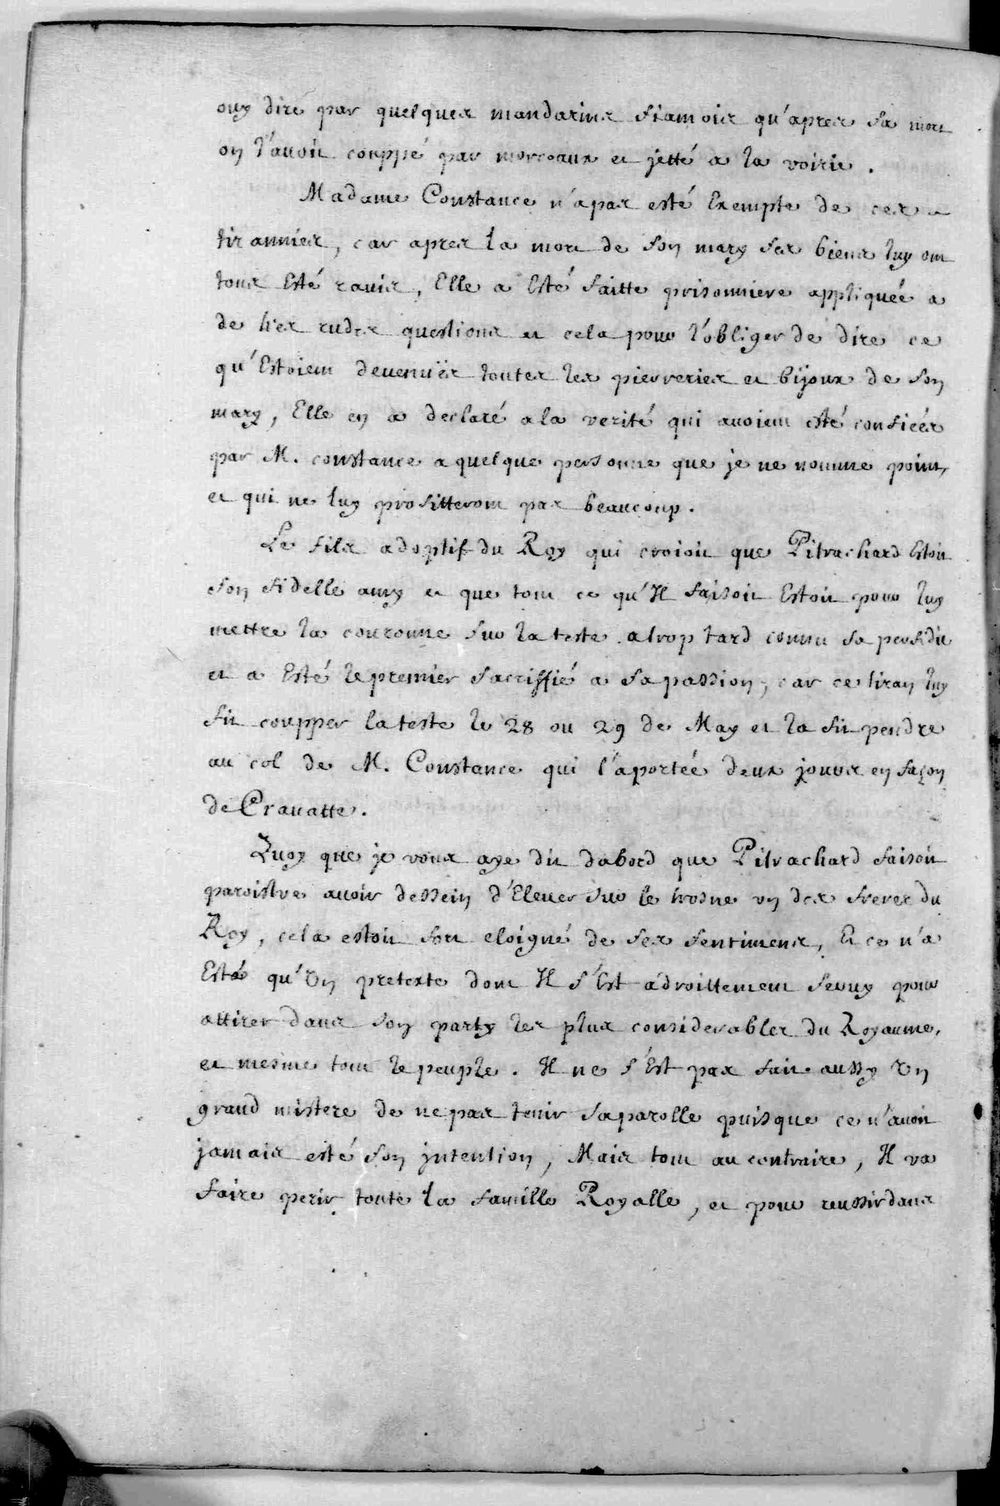 ouy dire par quelques mandarins siamois qu'apres sa mort
on l'avoit couppé par morceaux et jetté a la voirie.
Madame Constance n'a pas esté Exempte de ces
tirannies, car apres la mort de son mary ses biens luy ont
tous Esté ravis, Elle a Esté faitte prisonniere appliquée a
de tres rudes questions et cela pour l'obliger de dire ce
qu'Estoient devenuës toutes les pierreries et bijoux de son
mary, Elle en a declaré a la verité qui avoient esté confiées
par M. constance a quelque personne que je ne nomme point,
et qui ne luy profitteront pas beaucoup.
Le fils adoptif du Roy qui croioit que Pitrachard Estoit
son fidelle amy et que tout ce qu'Il faisoit Estoit pour luy
mettre la couronne sur la teste a trop tard connu sa perfidie
et a Esté le premier sacriffié a sa passion, car ce tiran luy
fit coupper la teste le 28 ou 29 de May et la fit pendre
au col de M. Constance qui l'a portée deux jours en façon
de Cravatte.
Quoy que je vous aye dit dabord que Pitrachard faisoit
paroistre avoir dessein d'Elever sur le trosne un des freres du
Roy, cela estoit fort eloigné de ses sentimens, Et ce n'a
Esté qu'Un pretexte dont Il s'Est adroittement servy pour
attirer dans son party les plus considerables du Royaume,
et mesme tout le peuple. Il ne s'Est pas fait aussy Un
grand mistere de ne pas tenir sa parolle puisque ce n'avoit
jamais esté son jntention, Mais tout au contraire, Il va
faire perir toute la famille Royalle, et pour reussir dans